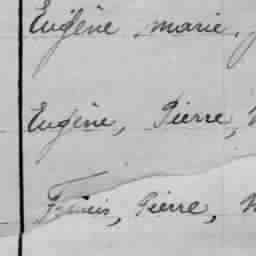 Eugène marie,
Eugène, Pierre,
Francis, Pierre,